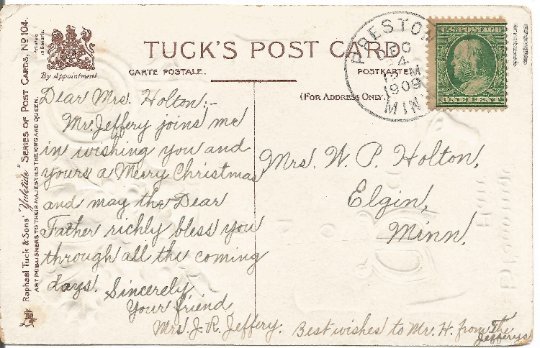 TUCK'S POST CARD
CARTE POSTALE.
POSTKARTE.
By Appointment.
(FOR ADDRESS ONLY.)
Raphael Tuck & Sons' "Yuletide" SERIES OF POST CARDS, No 104.
ART PUBLISHERS TO THEIR MAJESTIES THE KING AND QUEEN.
PRESTON
DEC
24
M
1909
MIN
ONE CENT
Dear Mrs. Holton:-
Mr. Jeffery joins me
in wishing you and
yours a Merry Christmas
and may the Dear
Father richly bless you
through all the coming
days. Sincerely
Your friend
Mrs J. R. Jeffery.
Best wishes to Mr. H. from The
Jefferys
Mrs. W. P. Holton,
Elgin,
Minn.